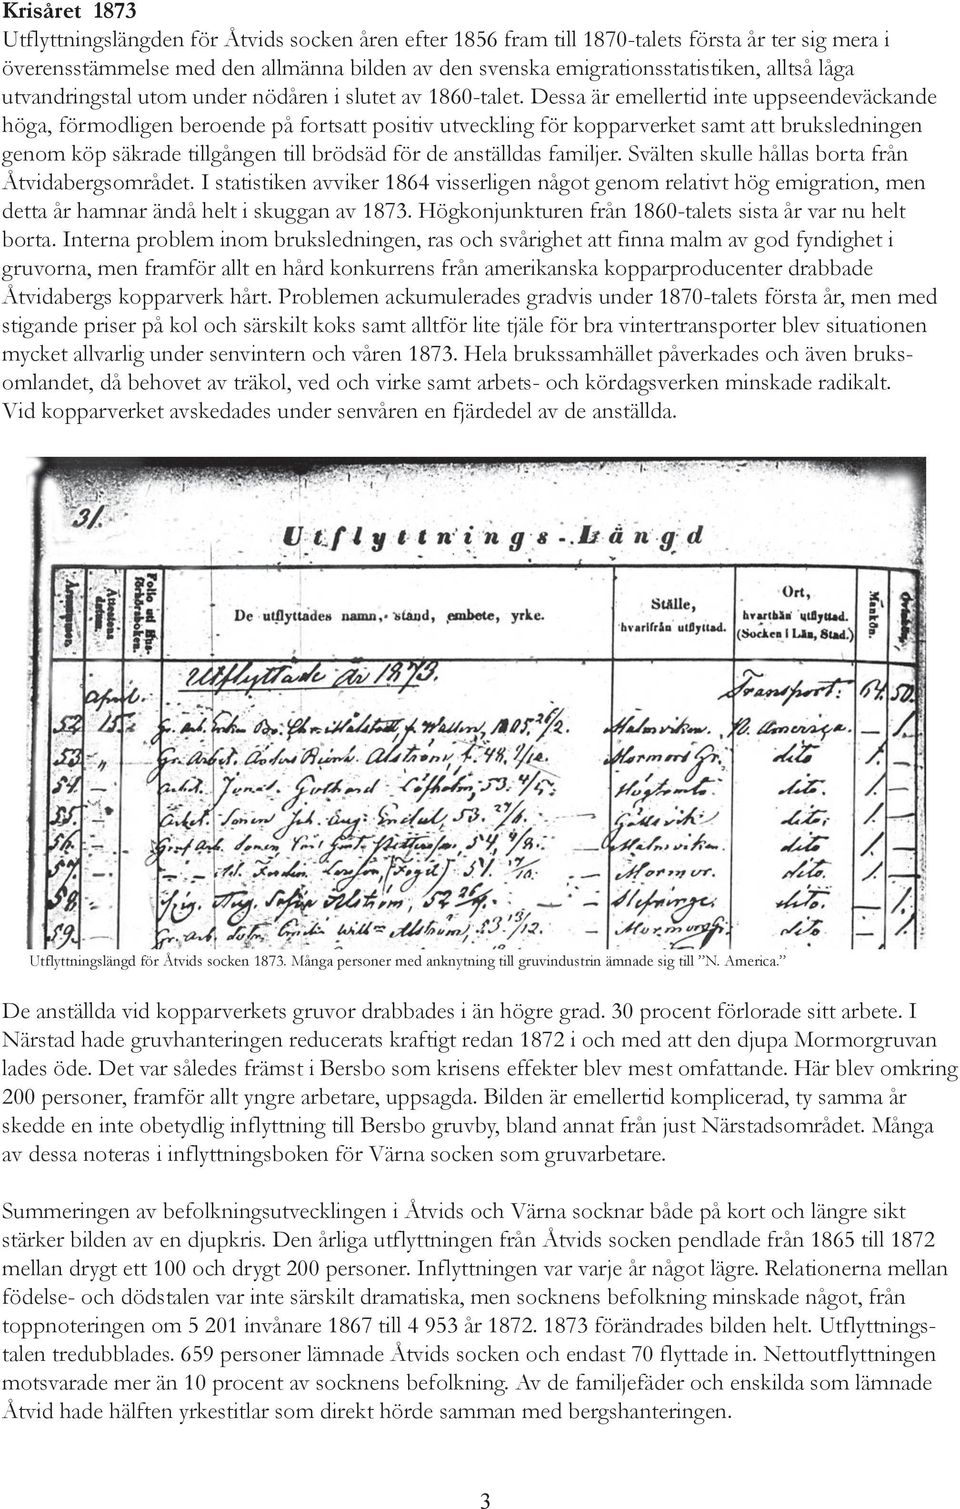 Krisåret 1873
Utflyttningslängden för Åtvids socken åren efter 1856 fram till 1870-talets första år ter sig mera i
överensstämmelse med den allmänna bilden av den svenska emigrationsstatistiken, alltså låga
utvandringstal utom under nödåren i slutet av 1860-talet. Dessa är emellertid inte uppseendeväckande
höga, förmodligen beroende på fortsatt positiv utveckling för kopparverket samt att bruksledningen
genom köp säkrade tillgången till brödsäd för de anställdas familjer. Svälten skulle hållas borta från
Åtvidabergsområdet. I statistiken avviker 1864 visserligen något genom relativt hög emigration, men
detta år hamnar ändå helt i skuggan av 1873. Högkonjunkturen från 1860-talets sista år var nu helt
borta. Interna problem inom bruksledningen, ras och svårighet att finna malm av god fyndighet i
gruvorna, men framför allt en hård konkurrens från amerikanska kopparproducenter drabbade
Åtvidabergs kopparverk hårt. Problemen ackumulerades gradvis under 1870-talets första år, men med
stigande priser på kol och särskilt koks samt alltför lite tjäle för bra vintertransporter blev situationen
mycket allvarlig under senvintern och våren 1873. Hela brukssamhället påverkades och även bruks-
omlandet, då behovet av träkol, ved och virke samt arbets- och kördagsverken minskade radikalt.
Vid kopparverket avskedades under senvåren en fjärdedel av de anställda.
31.
Utflyttnings-Längd
Attestens datum. Folio uti Husförhörsboken. De utflyttades namn, stånd, embete, yrke. Ställe, hvarifrån utflyttad. Ort, hvarthän utflyttad. (Socken i Län, Stad.) Mankön.
Utflyttade år 1873. Transport: 64. 50.
April.
52. 15. N. America. 1.
53. " Gr. Arbet. Anders Alström, f. 48. Mormors Gr. dito 1. —
54. — Arbt. Löfholm, 53. 4/5. dito. 1. —
55. — Arbet. Sonen Joh. Aug. 53. dito: 1. —
56. — Sonen Carl 54, dito 1. —
57. — (Fogel) 51. Mormor. dito. 1. —
58. — Aug. Sofia Alström, 52 dito. — 1.
59. — Gr. Arb. Alström, 53 13/12. Mormors Gr. dito 1. —
Utflyttningslängd för Åtvids socken 1873. Många personer med anknytning till gruvindustrin ämnade sig till ”N. America.”
De anställda vid kopparverkets gruvor drabbades i än högre grad. 30 procent förlorade sitt arbete. I
Närstad hade gruvhanteringen reducerats kraftigt redan 1872 i och med att den djupa Mormorgruvan
lades öde. Det var således främst i Bersbo som krisens effekter blev mest omfattande. Här blev omkring
200 personer, framför allt yngre arbetare, uppsagda. Bilden är emellertid komplicerad, ty samma år
skedde en inte obetydlig inflyttning till Bersbo gruvby, bland annat från just Närstadsområdet. Många
av dessa noteras i inflyttningsboken för Värna socken som gruvarbetare.
Summeringen av befolkningsutvecklingen i Åtvids och Värna socknar både på kort och längre sikt
stärker bilden av en djupkris. Den årliga utflyttningen från Åtvids socken pendlade från 1865 till 1872
mellan drygt ett 100 och drygt 200 personer. Inflyttningen var varje år något lägre. Relationerna mellan
födelse- och dödstalen var inte särskilt dramatiska, men socknens befolkning minskade något, från
toppnoteringen om 5 201 invånare 1867 till 4 953 år 1872. 1873 förändrades bilden helt. Utflyttnings-
talen tredubblades. 659 personer lämnade Åtvids socken och endast 70 flyttade in. Nettoutflyttningen
motsvarade mer än 10 procent av socknens befolkning. Av de familjefäder och enskilda som lämnade
Åtvid hade hälften yrkestitlar som direkt hörde samman med bergshanteringen.
3